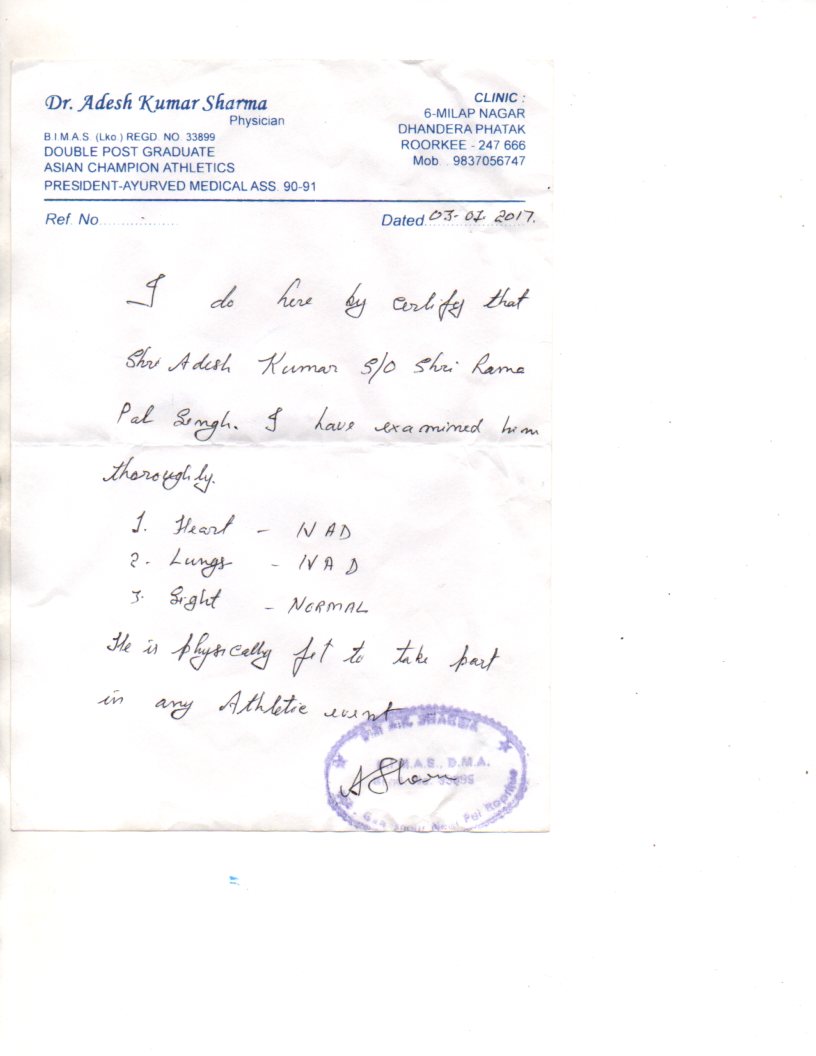 Dr. Adesh Kumar Sharma
Physician
B.I.M.A.S. (Lko.) REGD. NO. 33899
DOUBLE POST GRADUATE
ASIAN CHAMPION ATHLETICS
PRESIDENT-AYURVED MEDICAL ASS. 90-91
CLINIC :
6-MILAP NAGAR
DHANDERA PHATAK
ROORKEE - 247 666
Mob. : 9837056747
Ref. No.
Dated 03-01-2017.
I do here by certify that
Shri Adesh Kumar S/O Shri Rama
Pal Singh. I have examined him
thoroughly.
1. Heart - NAD
2. Lungs - NAD
3. Sight - NORMAL
He is physically fit to take part
in any Athletic event
A.K. SHARMA
M.A.S., D.M.A.
A Sharm